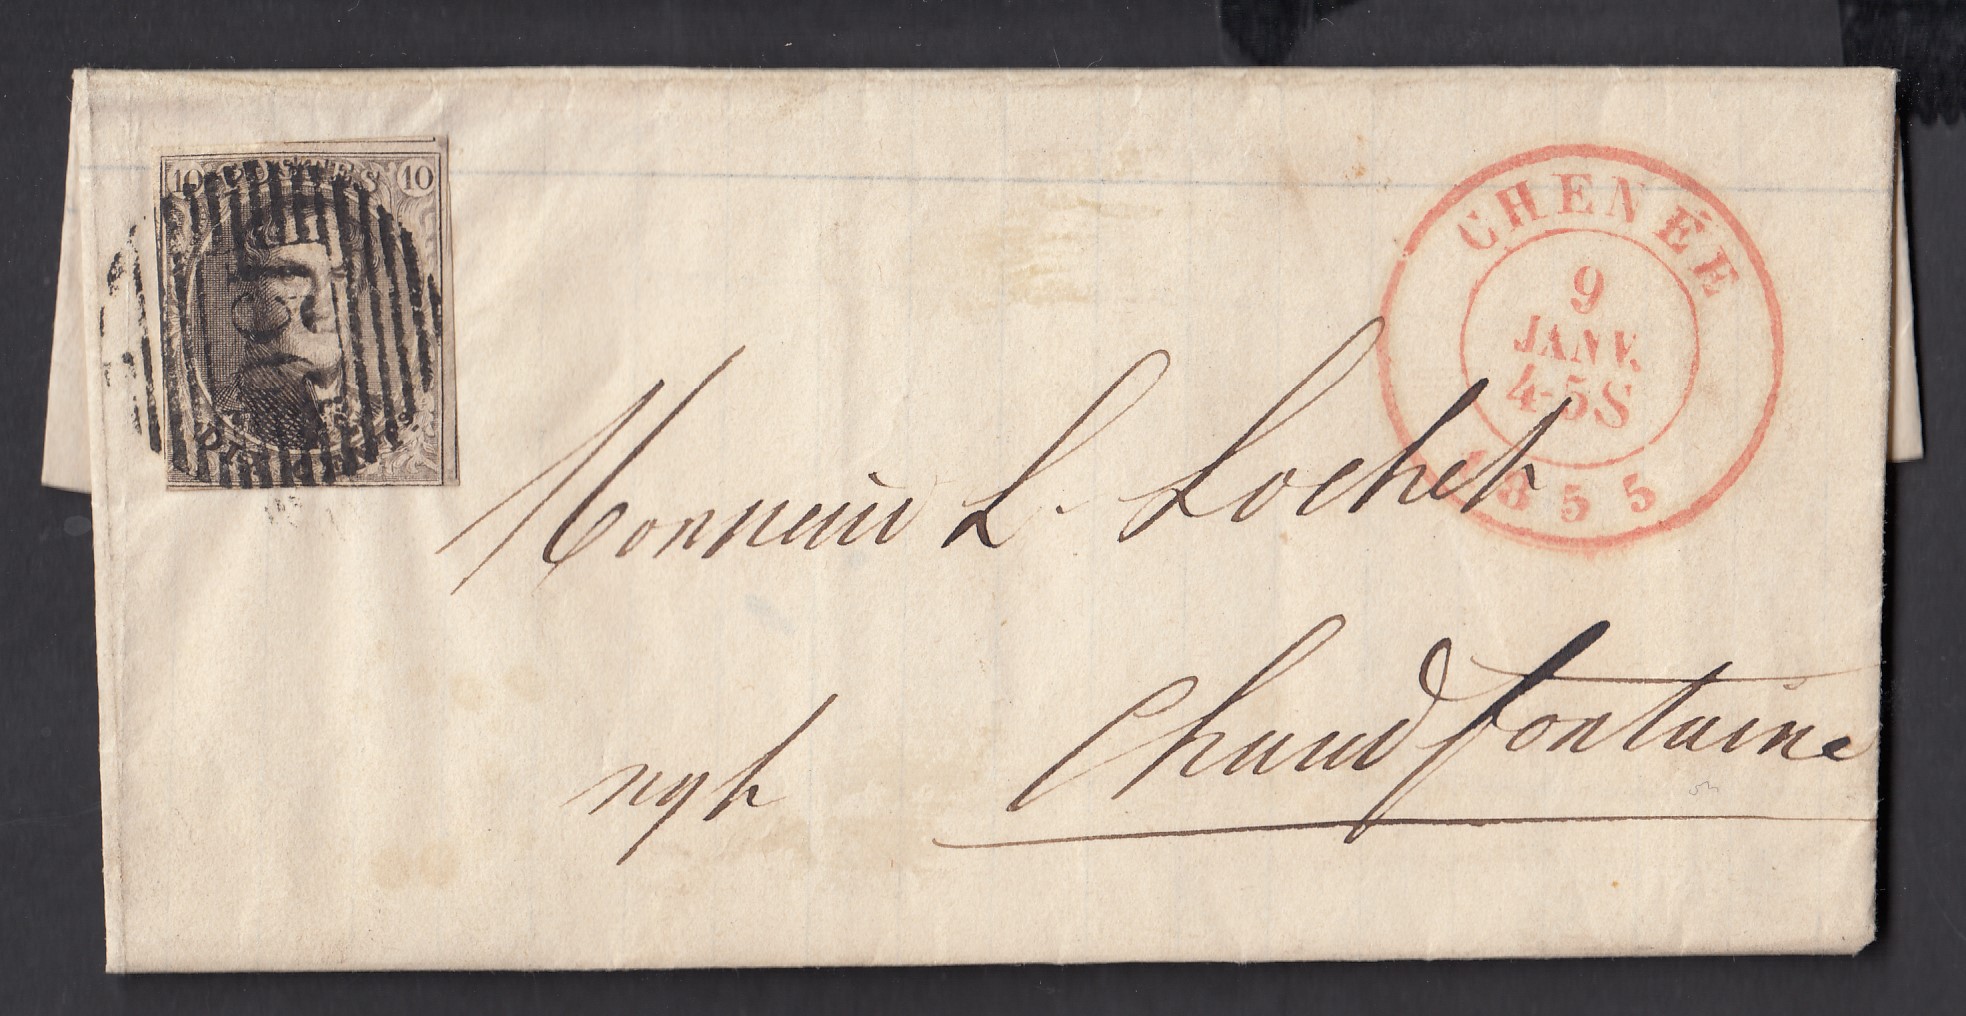 10 POSTES 10
CHENÉE
9
JANV.
4-5S
1855
Monsieur L. Lochet
ngt Chaudfontaine